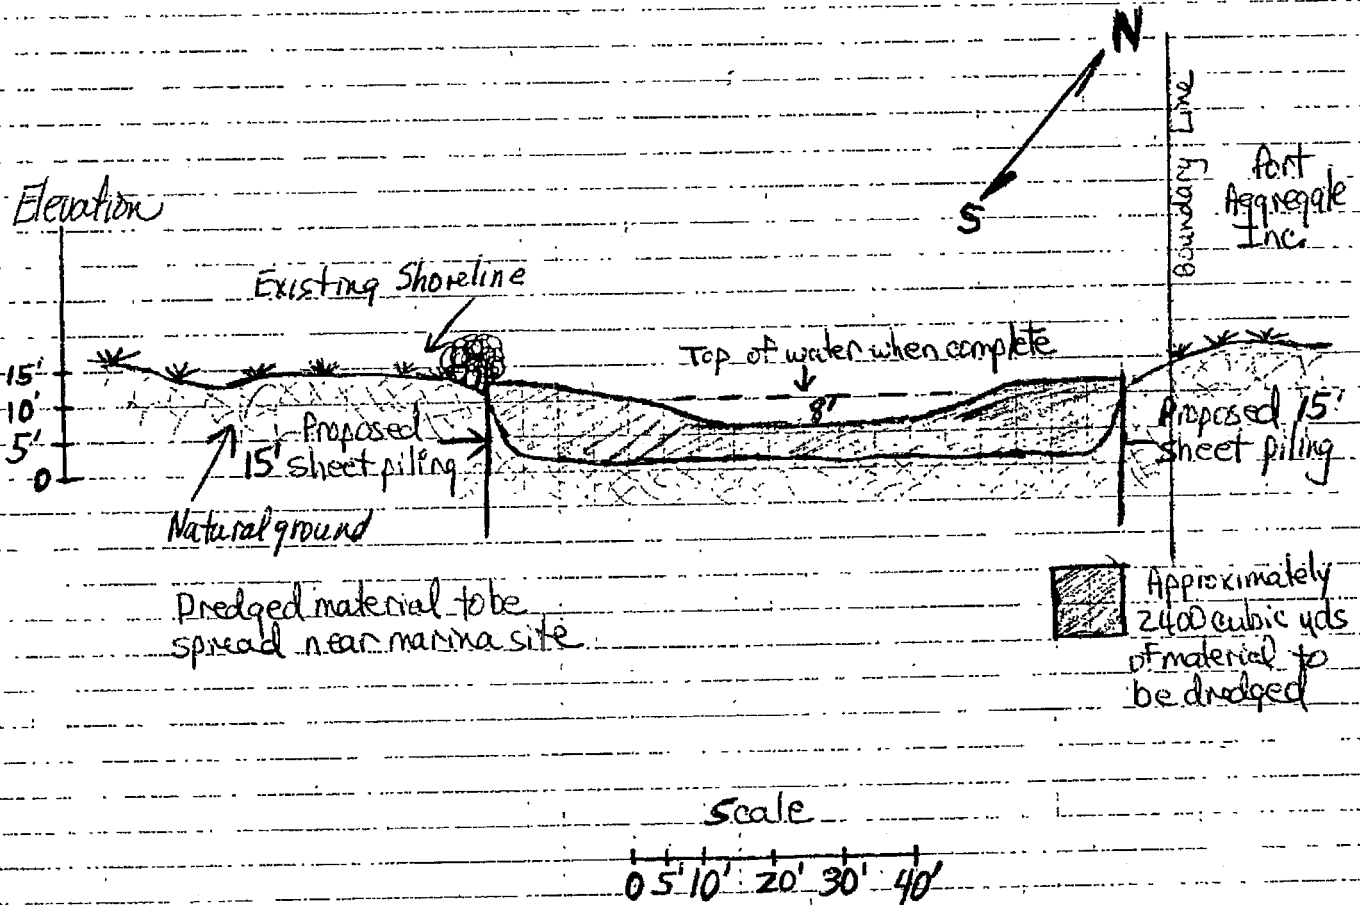 N
S
Boundary Line
Port
Aggregate
Inc.
Elevation
Existing Shoreline
Top of water when complete
8'
15'
10'
5'
0
Proposed
15' sheet piling
Proposed 15'
sheet piling
Natural ground
Dredged material to be
spread near marina site
Approximately
2400 cubic yds
of material to
be dredged
Scale
0 5' 10' 20' 30' 40'